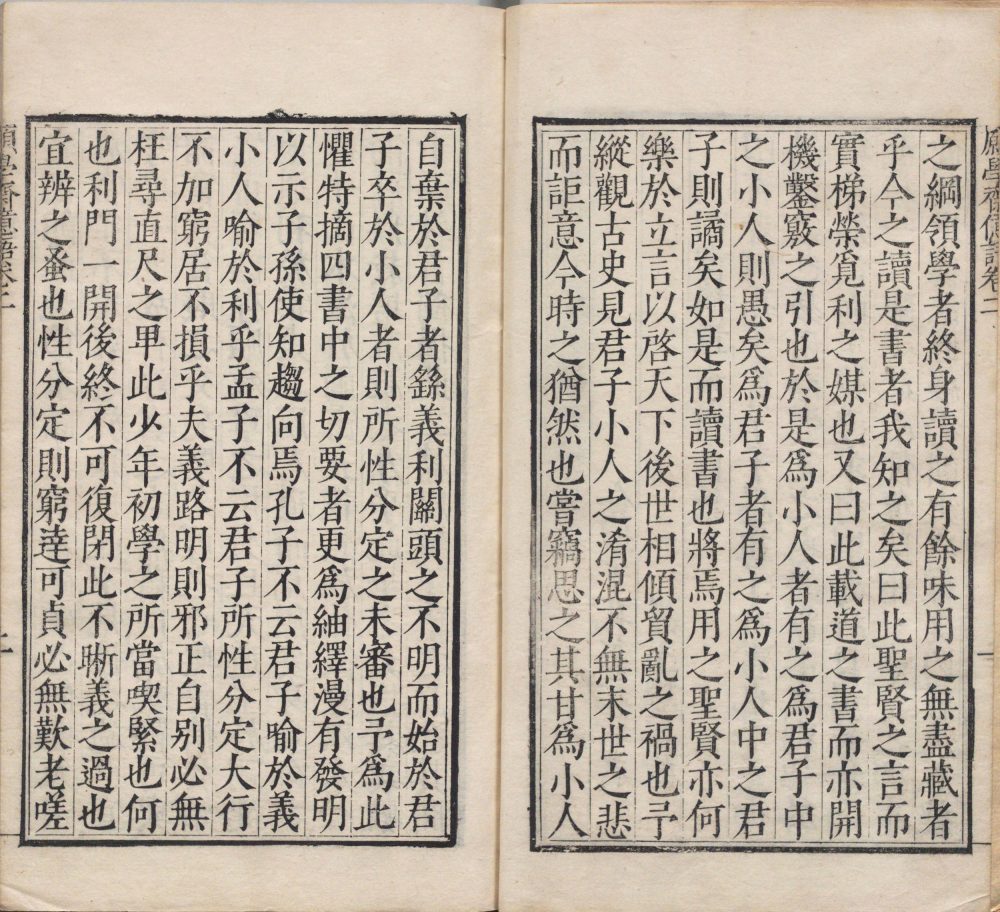 之綱領學者終身讀之有餘味用之無盡藏者
乎今之讀是書者我知之矣曰此聖賢之言而
實梯榮覓利之媒也又曰此載道之書而亦開
機鑿竅之引也於是為小人者有之為君子中
之小人則愚矣為君子者有之為小人中之君
子則譎矣如是而讀書也將焉用之聖賢亦何
樂於立言以啓天下後世相傾貿亂之禍也予
縱觀古史見君子小人之淆混不無末世之悲
而詎意今時之猶然也嘗竊思之其甘為小人
自棄於君子者繇義利關頭之不明而始於君
子卒於小人者則所性分定之未審也予為此
懼特摘四書中之切要者更為紬繹漫有發明
以示子孫使知趨向焉孔子不云君子喻於義
小人喻於利乎孟子不云君子所性分定大行
不加窮居不損乎夫義路明則邪正自別必無
枉尋直尺之甲此少年初學之所當喫緊也何
也利門一開後終不可復閉此不晰義之過也
宜辨之蚤也性分定則窮達可貞必無歎老嗟